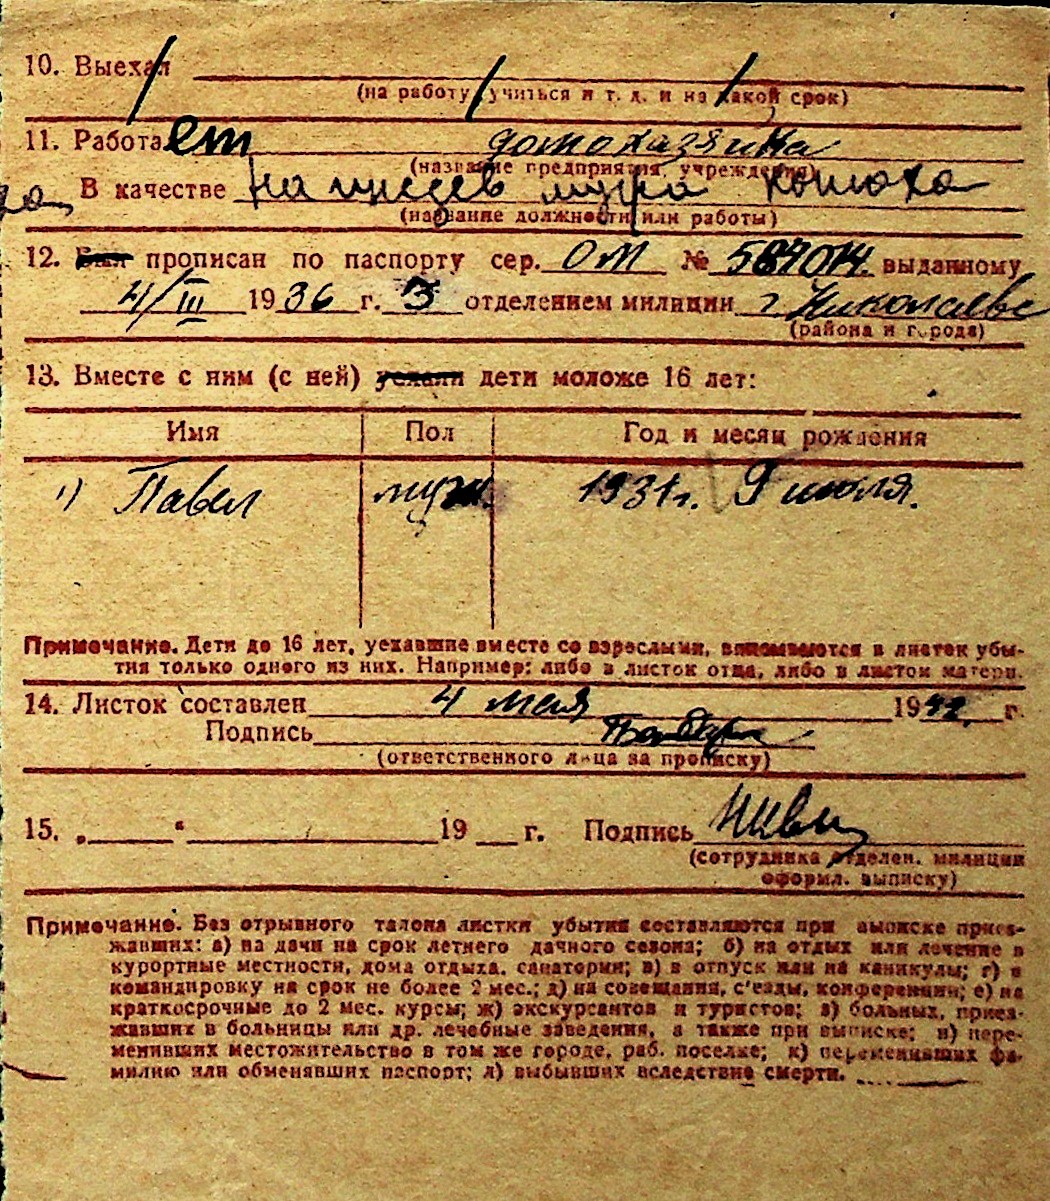 10. Выехал
(на работу, учиться и т. д. и на какой срок)
11. Работает домохазяйка
(название предприятия, учреждения)
В качестве на иждев мужа конюха
(название должности или работы)
12. Был прописан по паспорту сер. ОМ № 587014 выданному
4/III 1936 г. 3 отделением милиции г Николаеве
(района и города)
13. Вместе с ним (с ней) уехали дети моложе 16 лет:
Имя Пол Год и месяц рождения
1) Павел муж. 1931 г. 9 июля.
Примечание. Дети до 16 лет, уехавшие вместе со взрослыми, вписываются в листок убы-
тия только одного из них. Например: либо в листок отца, либо в листок матери.
14. Листок составлен 4 мая 1942 г.
Подпись
(ответственного лица за прописку)
15. „ “ 19 г. Подпись
(сотрудника отделен. милиции
оформл. выписку)
Примечание. Без отрывного талона листки убытия составляются при выписке приез-
жавших: а) на дачи на срок летнего дачного сезона; б) на отдых или лечение в
курортные местности, дома отдыха, санатории; в) в отпуск или на каникулы; г) в
командировку на срок не более 2 мес.; д) на совещания, с'езды, конференции; е) на
краткосрочные до 2 мес. курсы; ж) экскурсантов и туристов; з) больных, приез-
жавших в больницы или др. лечебные заведения, а также при выписке; и) пере-
менивших местожительство в том же городе, раб. поселке; к) переменивших фа-
милию или обменявших паспорт; л) выбывших вследствие смерти.